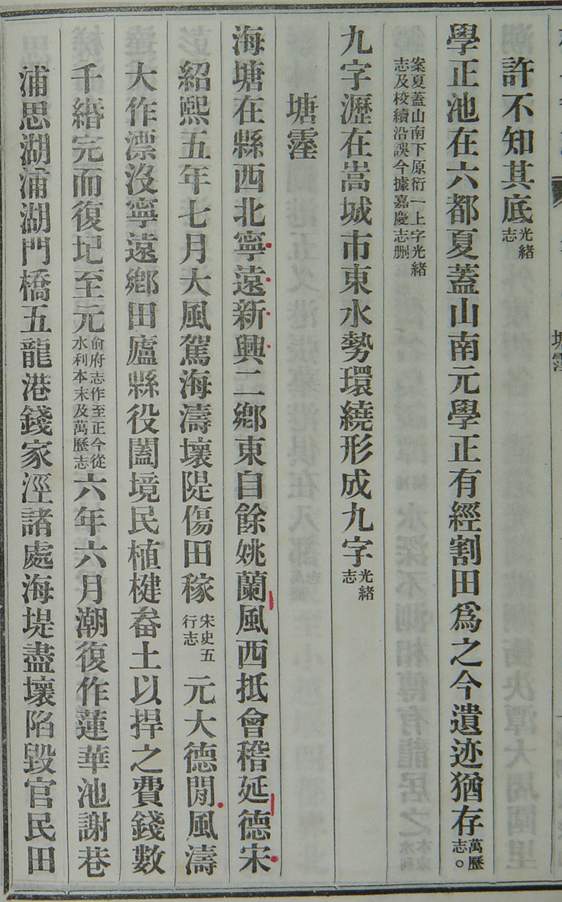 許不知其底光緒志
學正池在六都夏蓋山南元學正有經割田爲之今遺迹猶存萬歷志。
案夏蓋山南下原衍一上字光緒志及校續沿誤今據嘉慶志刪
九字瀝在嵩城市東水勢環繞形成九字光緒志
塘霪
海塘在縣西北寧遠新興二鄉東自餘姚蘭風西抵會稽延德宋
紹熙五年七月大風駕海濤壞隄傷田稼宋史五行志元大德閒風濤
大作漂沒寧遠鄉田廬縣役闔境民植楗畚土以捍之費錢數
千緡完而復圮至元俞府志作至正今從水利本末及萬歷志六年六月潮復作蓮華池謝巷
浦思湖浦湖門橋五龍港錢家涇諸處海堤盡壞陷毀官民田
塘霪